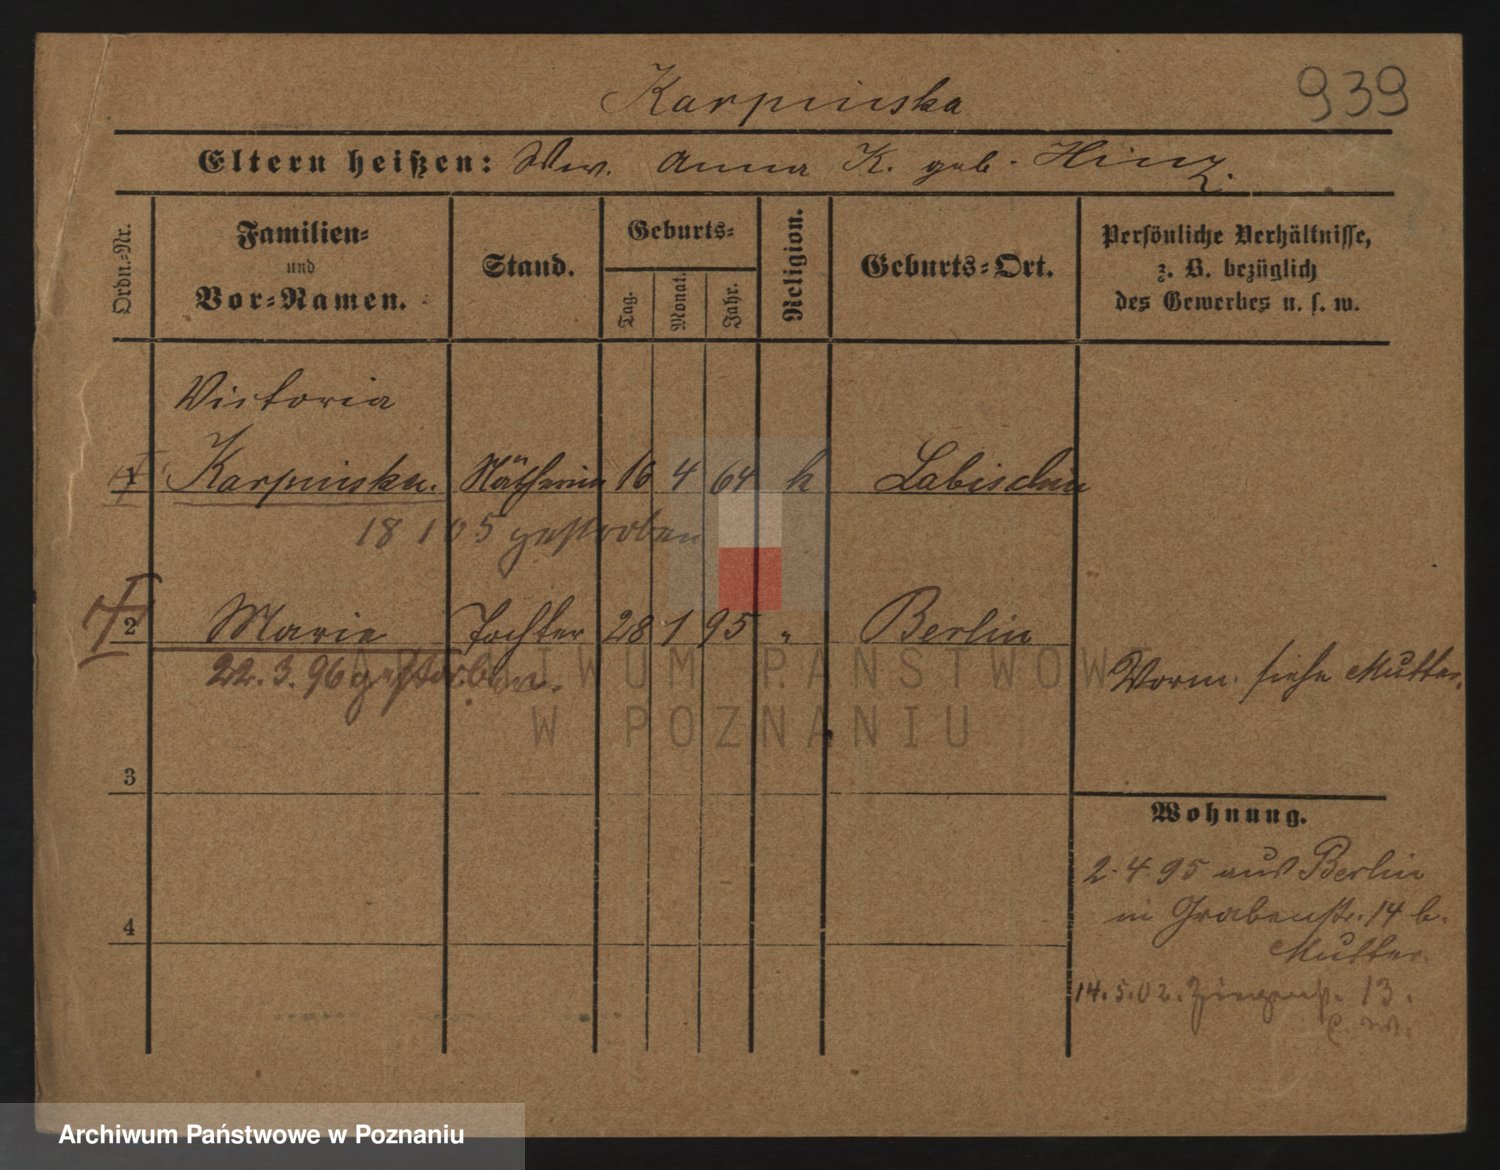 Karpinska
939
Eltern heißen: Ww. Anna K. geb. Hinz.
Ordn.-Nr.
Familien- und Vor-Namen.
Stand.
Geburts-
Tag.
Monat.
Jahr.
Religion.
Geburts-Ort.
Persönliche Verhältnisse,
z. B. bezüglich
des Gewerbes u. s. w.
Victoria
1 Karpinska. Nätherin 16 4 64 k Labischin
18 1 05 gestorben
2 Marie Tochter 28 1 95 " Berlin
22.3.96 gestorben.
Worm. siehe Mutter.
3
Wohnung.
2.4.95 aus Berlin
in Grabenstr. 14 b.
Mutter.
4
14.5.02. Ziegenstr. 13.
ARCHIWUM PAŃSTWOWE
W POZNANIU
Archiwum Państwowe w Poznaniu